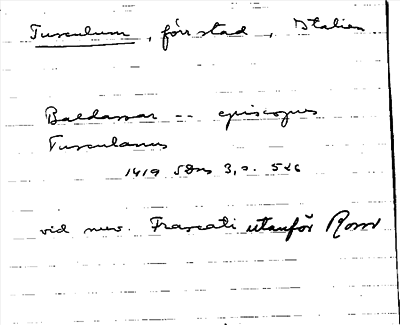 Tusculum, förr stad, Italien
Baldassar -- episcopus
Tusculanus
1419 SDns 3, s. 526
vid nuv. Frascati utanför Rom